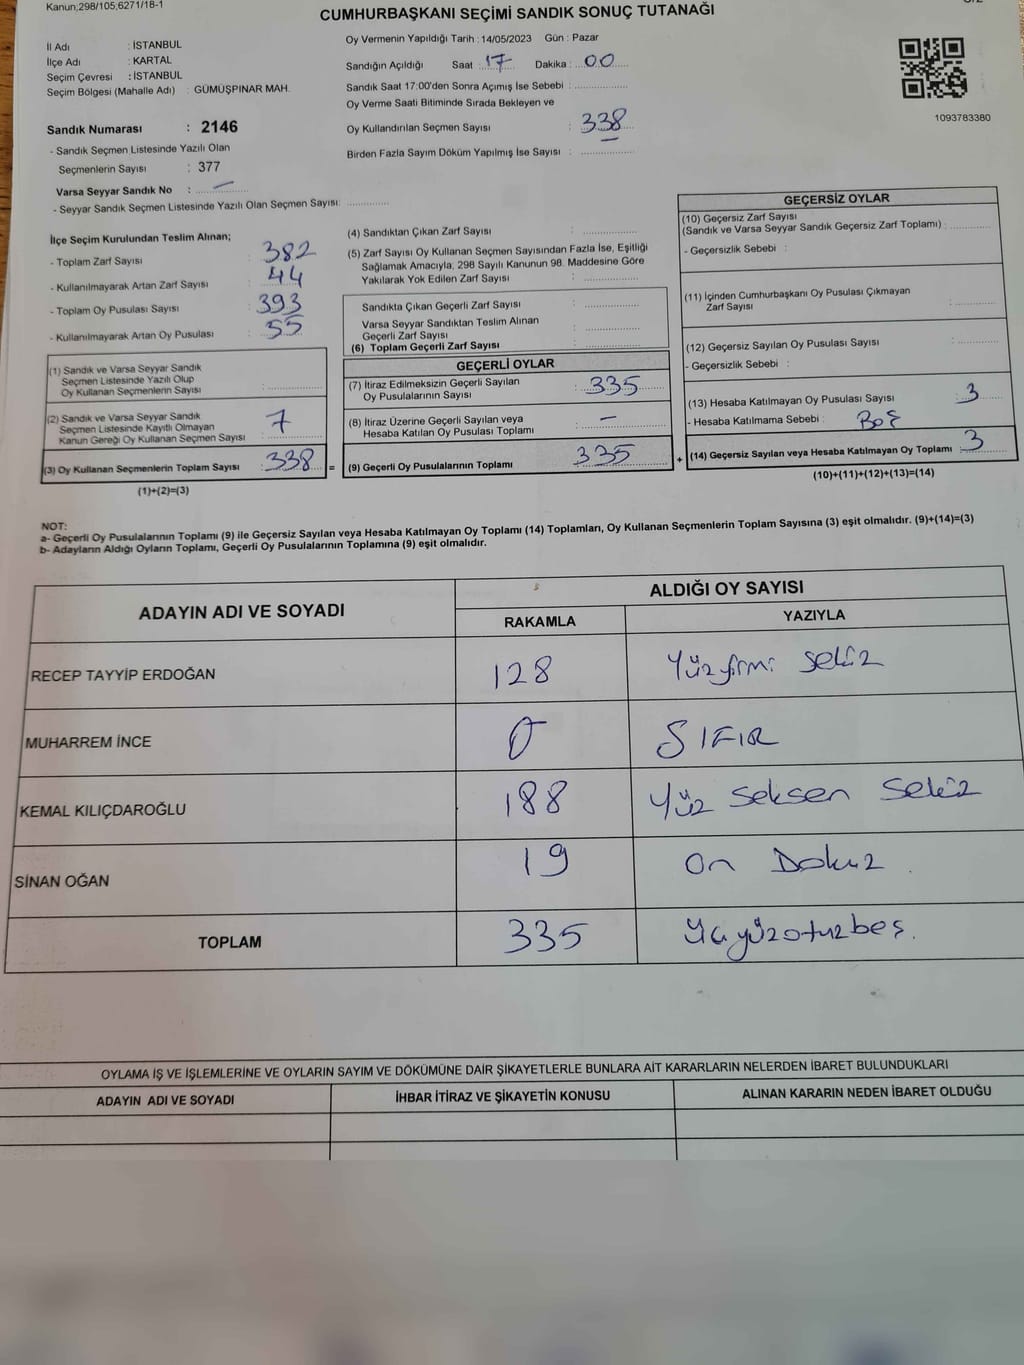 Kanun;298/105;6271/18-1
CUMHURBAŞKANI SEÇİMİ SANDIK SONUÇ TUTANAĞI
İl Adı : İSTANBUL
İlçe Adı : KARTAL
Seçim Çevresi : İSTANBUL
Seçim Bölgesi (Mahalle Adı) : GÜMÜŞPINAR MAH.
Oy Vermenin Yapıldığı Tarih : 14/05/2023 Gün : Pazar
Sandığın Açıldığı Saat : 17 Dakika : 00
Sandık Saat 17:00'den Sonra Açımış İse Sebebi :
Oy Verme Saati Bitiminde Sırada Bekleyen ve
Oy Kullandırılan Seçmen Sayısı : 338
Birden Fazla Sayım Döküm Yapılmış İse Sayısı :
1093783380
Sandık Numarası : 2146
- Sandık Seçmen Listesinde Yazılı Olan
Seçmenlerin Sayısı : 377
Varsa Seyyar Sandık No : —
- Seyyar Sandık Seçmen Listesinde Yazılı Olan Seçmen Sayısı:
İlçe Seçim Kurulundan Teslim Alınan;
- Toplam Zarf Sayısı : 382
- Kullanılmayarak Artan Zarf Sayısı : 44
- Toplam Oy Pusulası Sayısı : 393
- Kullanılmayarak Artan Oy Pusulası : 55
(1) Sandık ve Varsa Seyyar Sandık
Seçmen Listesinde Yazılı Olup
Oy Kullanan Seçmenlerin Sayısı :
(2) Sandık ve Varsa Seyyar Sandık
Seçmen Listesinde Kayıtlı Olmayan
Kanun Gereği Oy Kullanan Seçmen Sayısı : 7
(3) Oy Kullanan Seçmenlerin Toplam Sayısı : 338 =
(1)+(2)=(3)
(4) Sandıktan Çıkan Zarf Sayısı :
(5) Zarf Sayısı Oy Kullanan Seçmen Sayısından Fazla İse, Eşitliği
Sağlamak Amacıyla, 298 Sayılı Kanunun 98. Maddesine Göre
Yakılarak Yok Edilen Zarf Sayısı :
Sandıkta Çıkan Geçerli Zarf Sayısı :
Varsa Seyyar Sandıktan Teslim Alınan
Geçerli Zarf Sayısı :
(6) Toplam Geçerli Zarf Sayısı :
GEÇERLİ OYLAR
(7) İtiraz Edilmeksizin Geçerli Sayılan
Oy Pusulalarının Sayısı : 335
(8) İtiraz Üzerine Geçerli Sayılan veya
Hesaba Katılan Oy Pusulası Toplamı : —
(9) Geçerli Oy Pusulalarının Toplamı : 335 +
GEÇERSİZ OYLAR
(10) Geçersiz Zarf Sayısı
(Sandık ve Varsa Seyyar Sandık Geçersiz Zarf Toplamı) :
- Geçersizlik Sebebi :
(11) İçinden Cumhurbaşkanı Oy Pusulası Çıkmayan
Zarf Sayısı :
(12) Geçersiz Sayılan Oy Pusulası Sayısı :
- Geçersizlik Sebebi :
(13) Hesaba Katılmayan Oy Pusulası Sayısı : 3
- Hesaba Katılmama Sebebi : Boş
(14) Geçersiz Sayılan veya Hesaba Katılmayan Oy Toplamı : 3
(10)+(11)+(12)+(13)=(14)
NOT:
a- Geçerli Oy Pusulalarının Toplamı (9) ile Geçersiz Sayılan veya Hesaba Katılmayan Oy Toplamı (14) Toplamları, Oy Kullanan Seçmenlerin Toplam Sayısına (3) eşit olmalıdır. (9)+(14)=(3)
b- Adayların Aldığı Oyların Toplamı, Geçerli Oy Pusulalarının Toplamına (9) eşit olmalıdır.
ADAYIN ADI VE SOYADI
ALDIĞI OY SAYISI
RAKAMLA YAZIYLA
RECEP TAYYİP ERDOĞAN 128 Yüzyirmi sekiz
MUHARREM İNCE 0 SIFIR
KEMAL KILIÇDAROĞLU 188 Yüz seksen sekiz
SİNAN OĞAN 19 On Dokuz
TOPLAM 335 üçyüzotuzbeş.
OYLAMA İŞ VE İŞLEMLERİNE VE OYLARIN SAYIM VE DÖKÜMÜNE DAİR ŞİKAYETLERLE BUNLARA AİT KARARLARIN NELERDEN İBARET BULUNDUKLARI
ADAYIN ADI VE SOYADI İHBAR İTİRAZ VE ŞİKAYETİN KONUSU ALINAN KARARIN NEDEN İBARET OLDUĞU